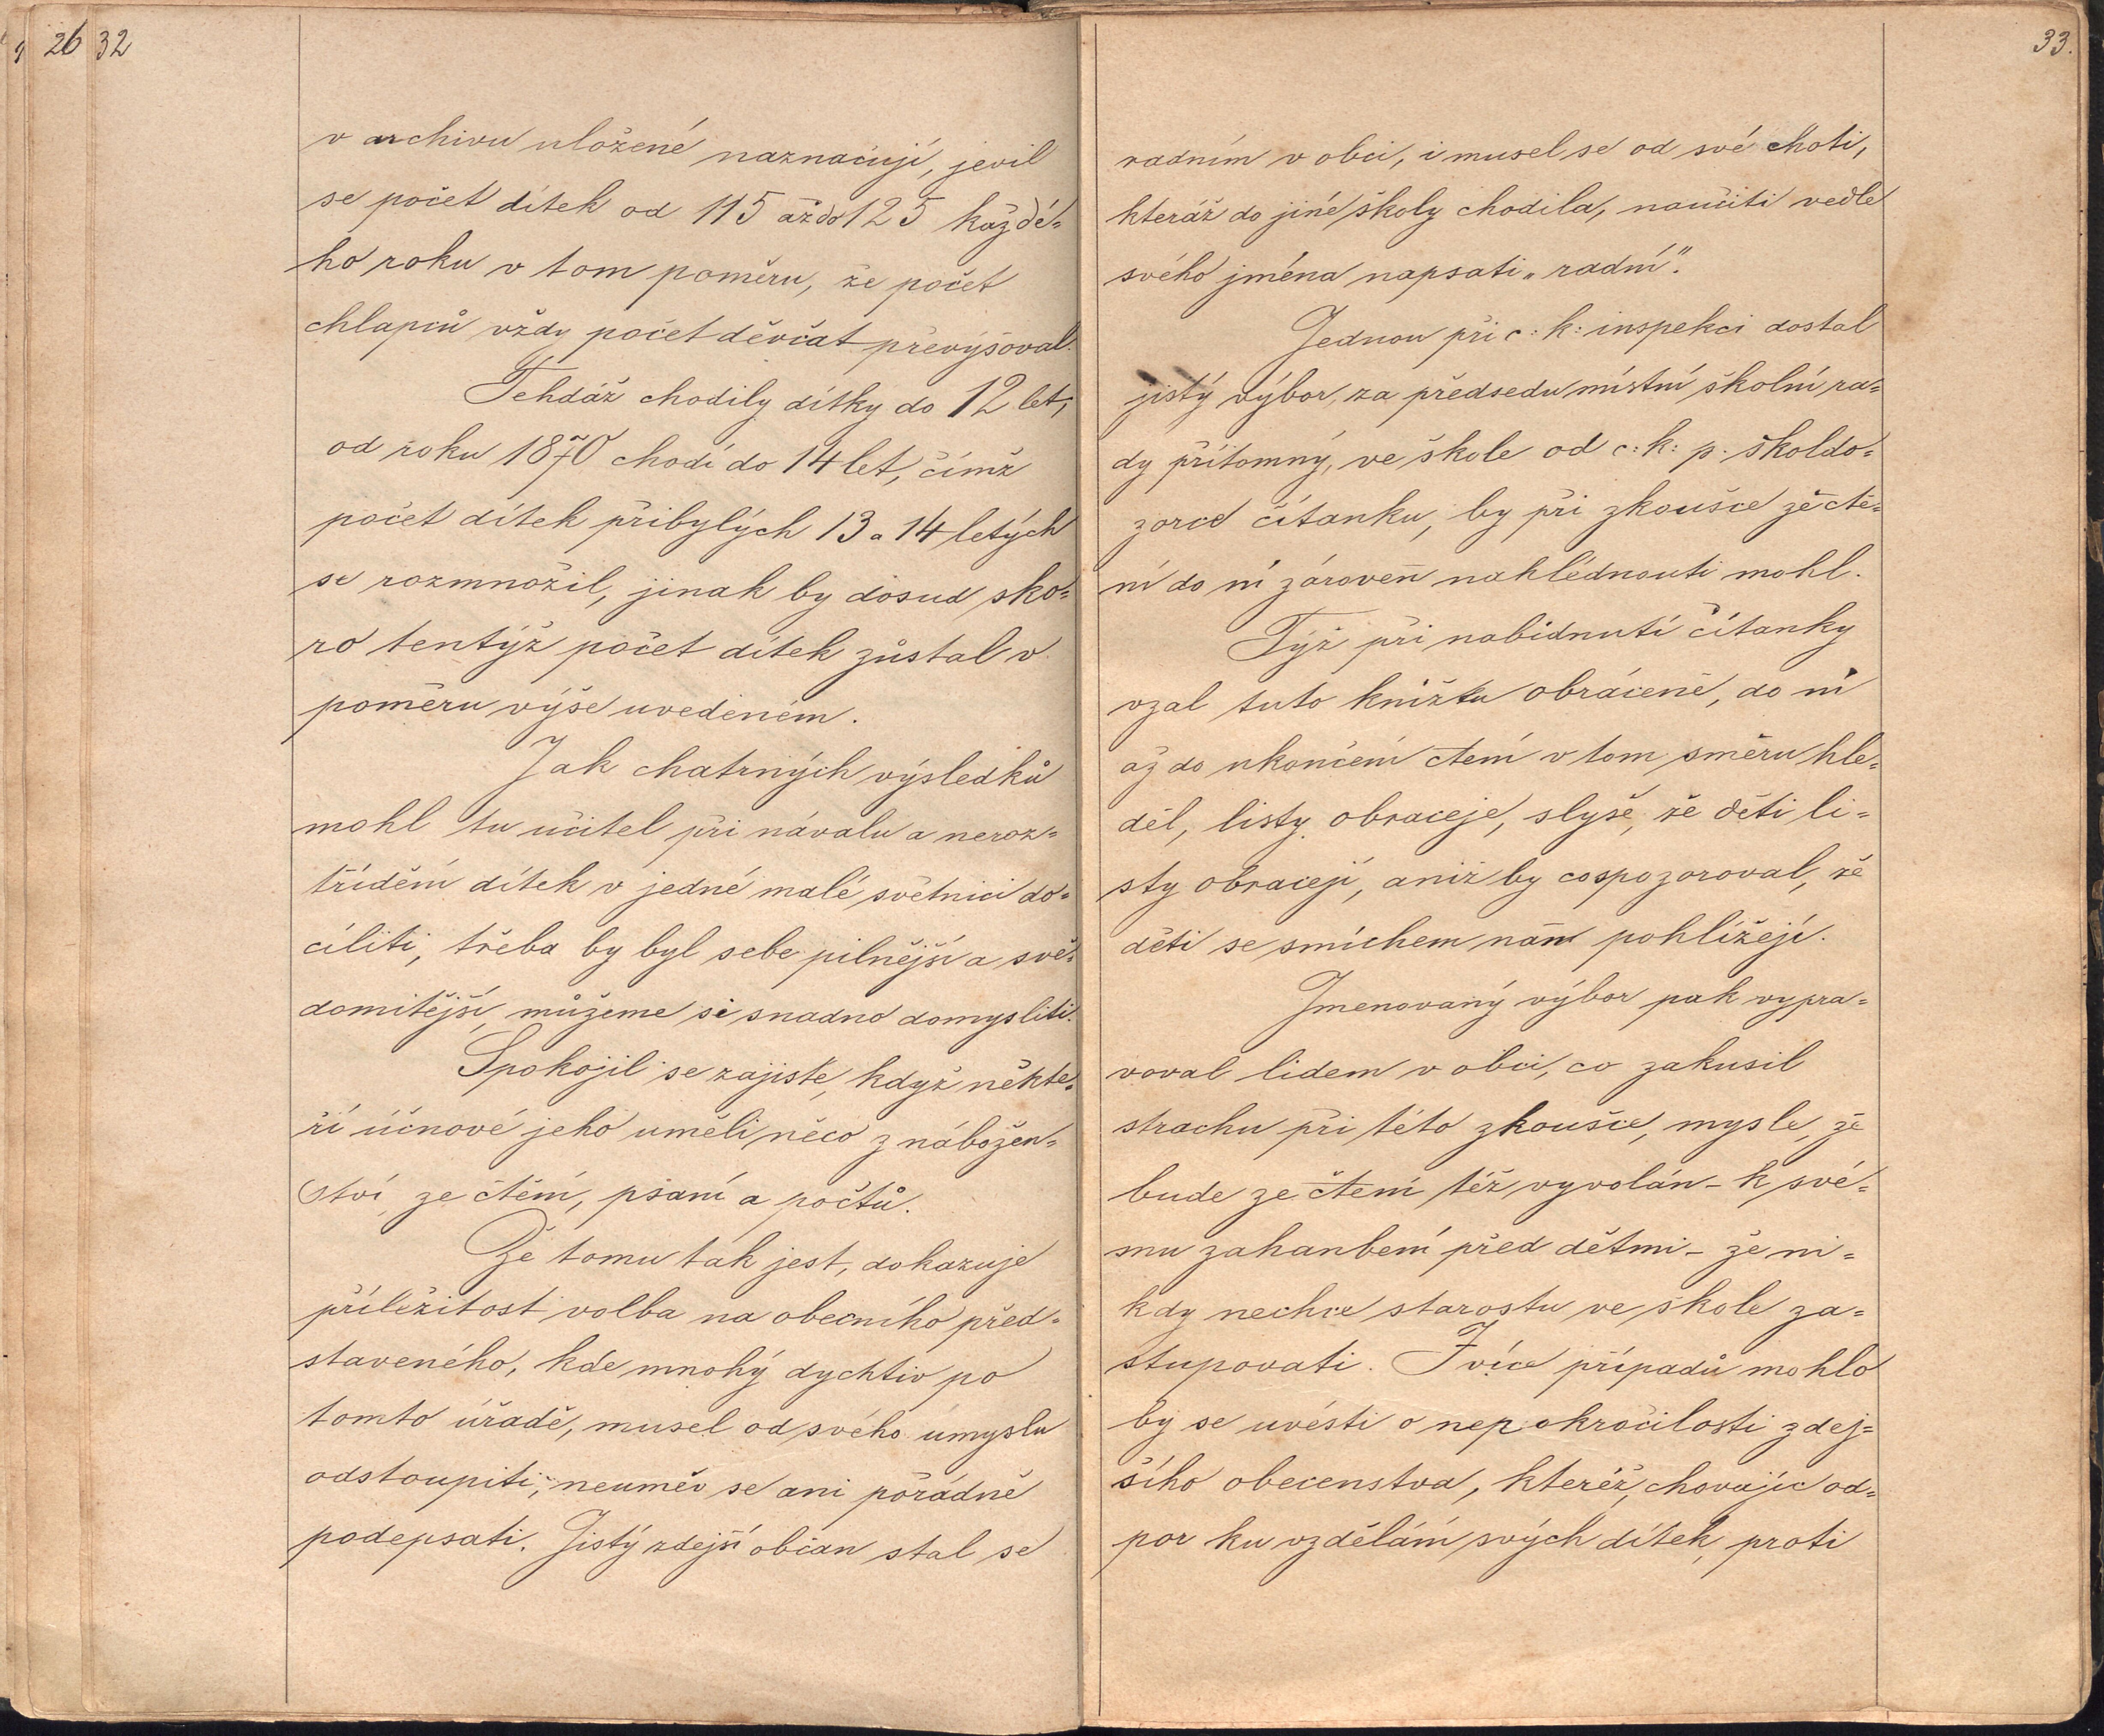 26 32
v archivu uložené naznačují, jevil
se počet dítek od 115 až do 125 každé=
ho roku v tom poměru, že počet
chlapců vždy počet děvčat převyšoval.
Tehdáž chodily dítky do 12 let,
od roku 1870 chodí do 14 let, čímž
počet dítek přibylých 13 a 14 letých
se rozmnožil, jinak by dosud sko=
ro tentýž počet dítek zůstal v
poměru výše uvedeném.
Jak chatrných výsledků
mohl tu učitel při návalu a neroz=
třídění dítek v jedné malé světnici do=
cíliti, třeba by byl sebe pilnější a svě=
domitější, můžeme si snadno domysliti.
Spokojil se zajisté, když někte=
ří účnové jeho uměli něco z nábožen=
ství, ze čtění, psaní a počtů.
Že tomu tak jest, dokazuje
příležitost volba na obecního před=
staveného, kde mnohý dychtiv po
tomto úřadě, musel od svého úmyslu
odstoupiti, neuměv se ani pořádně
podepsati. Jistý zdejší občan stal se
33.
radním v obci, i musel se od své choti,
kteráž do jiné školy chodila, naučiti vedle
svého jména napsati „radní".
Jednou při c: k: inspekci dostal
jistý výbor, za předsedu místní školní ra=
dy přítomný, ve škole od c: k: p. školdo=
zorce čítanku, by při zkoušce ze čte=
ní do ní zároveň nahlédnouti mohl.
Týž při nabídnutí čítanky
vzal tuto knížku obráceně, do ní
až do ukončení čtení v tom směru hle=
děl, listy obraceje, slyše, že děti li=
sty obracejí, aniž by co pozoroval, že
děti se smíchem naň pohlížejí.
Jmenovaný výbor pak vypra=
voval lidem v obci, co zakusil
strachu při této zkoušce, mysle, že
bude ze čtení též vyvolán – k své=
mu zahanbení před dětmi – že ni=
kdy nechce starostu ve škole za=
stupovati. I více případů mohlo
by se uvésti o nepokročilosti zdej=
šího obecenstva, kteréž, chovajíc od=
por ku vzdělání svých dítek, proti